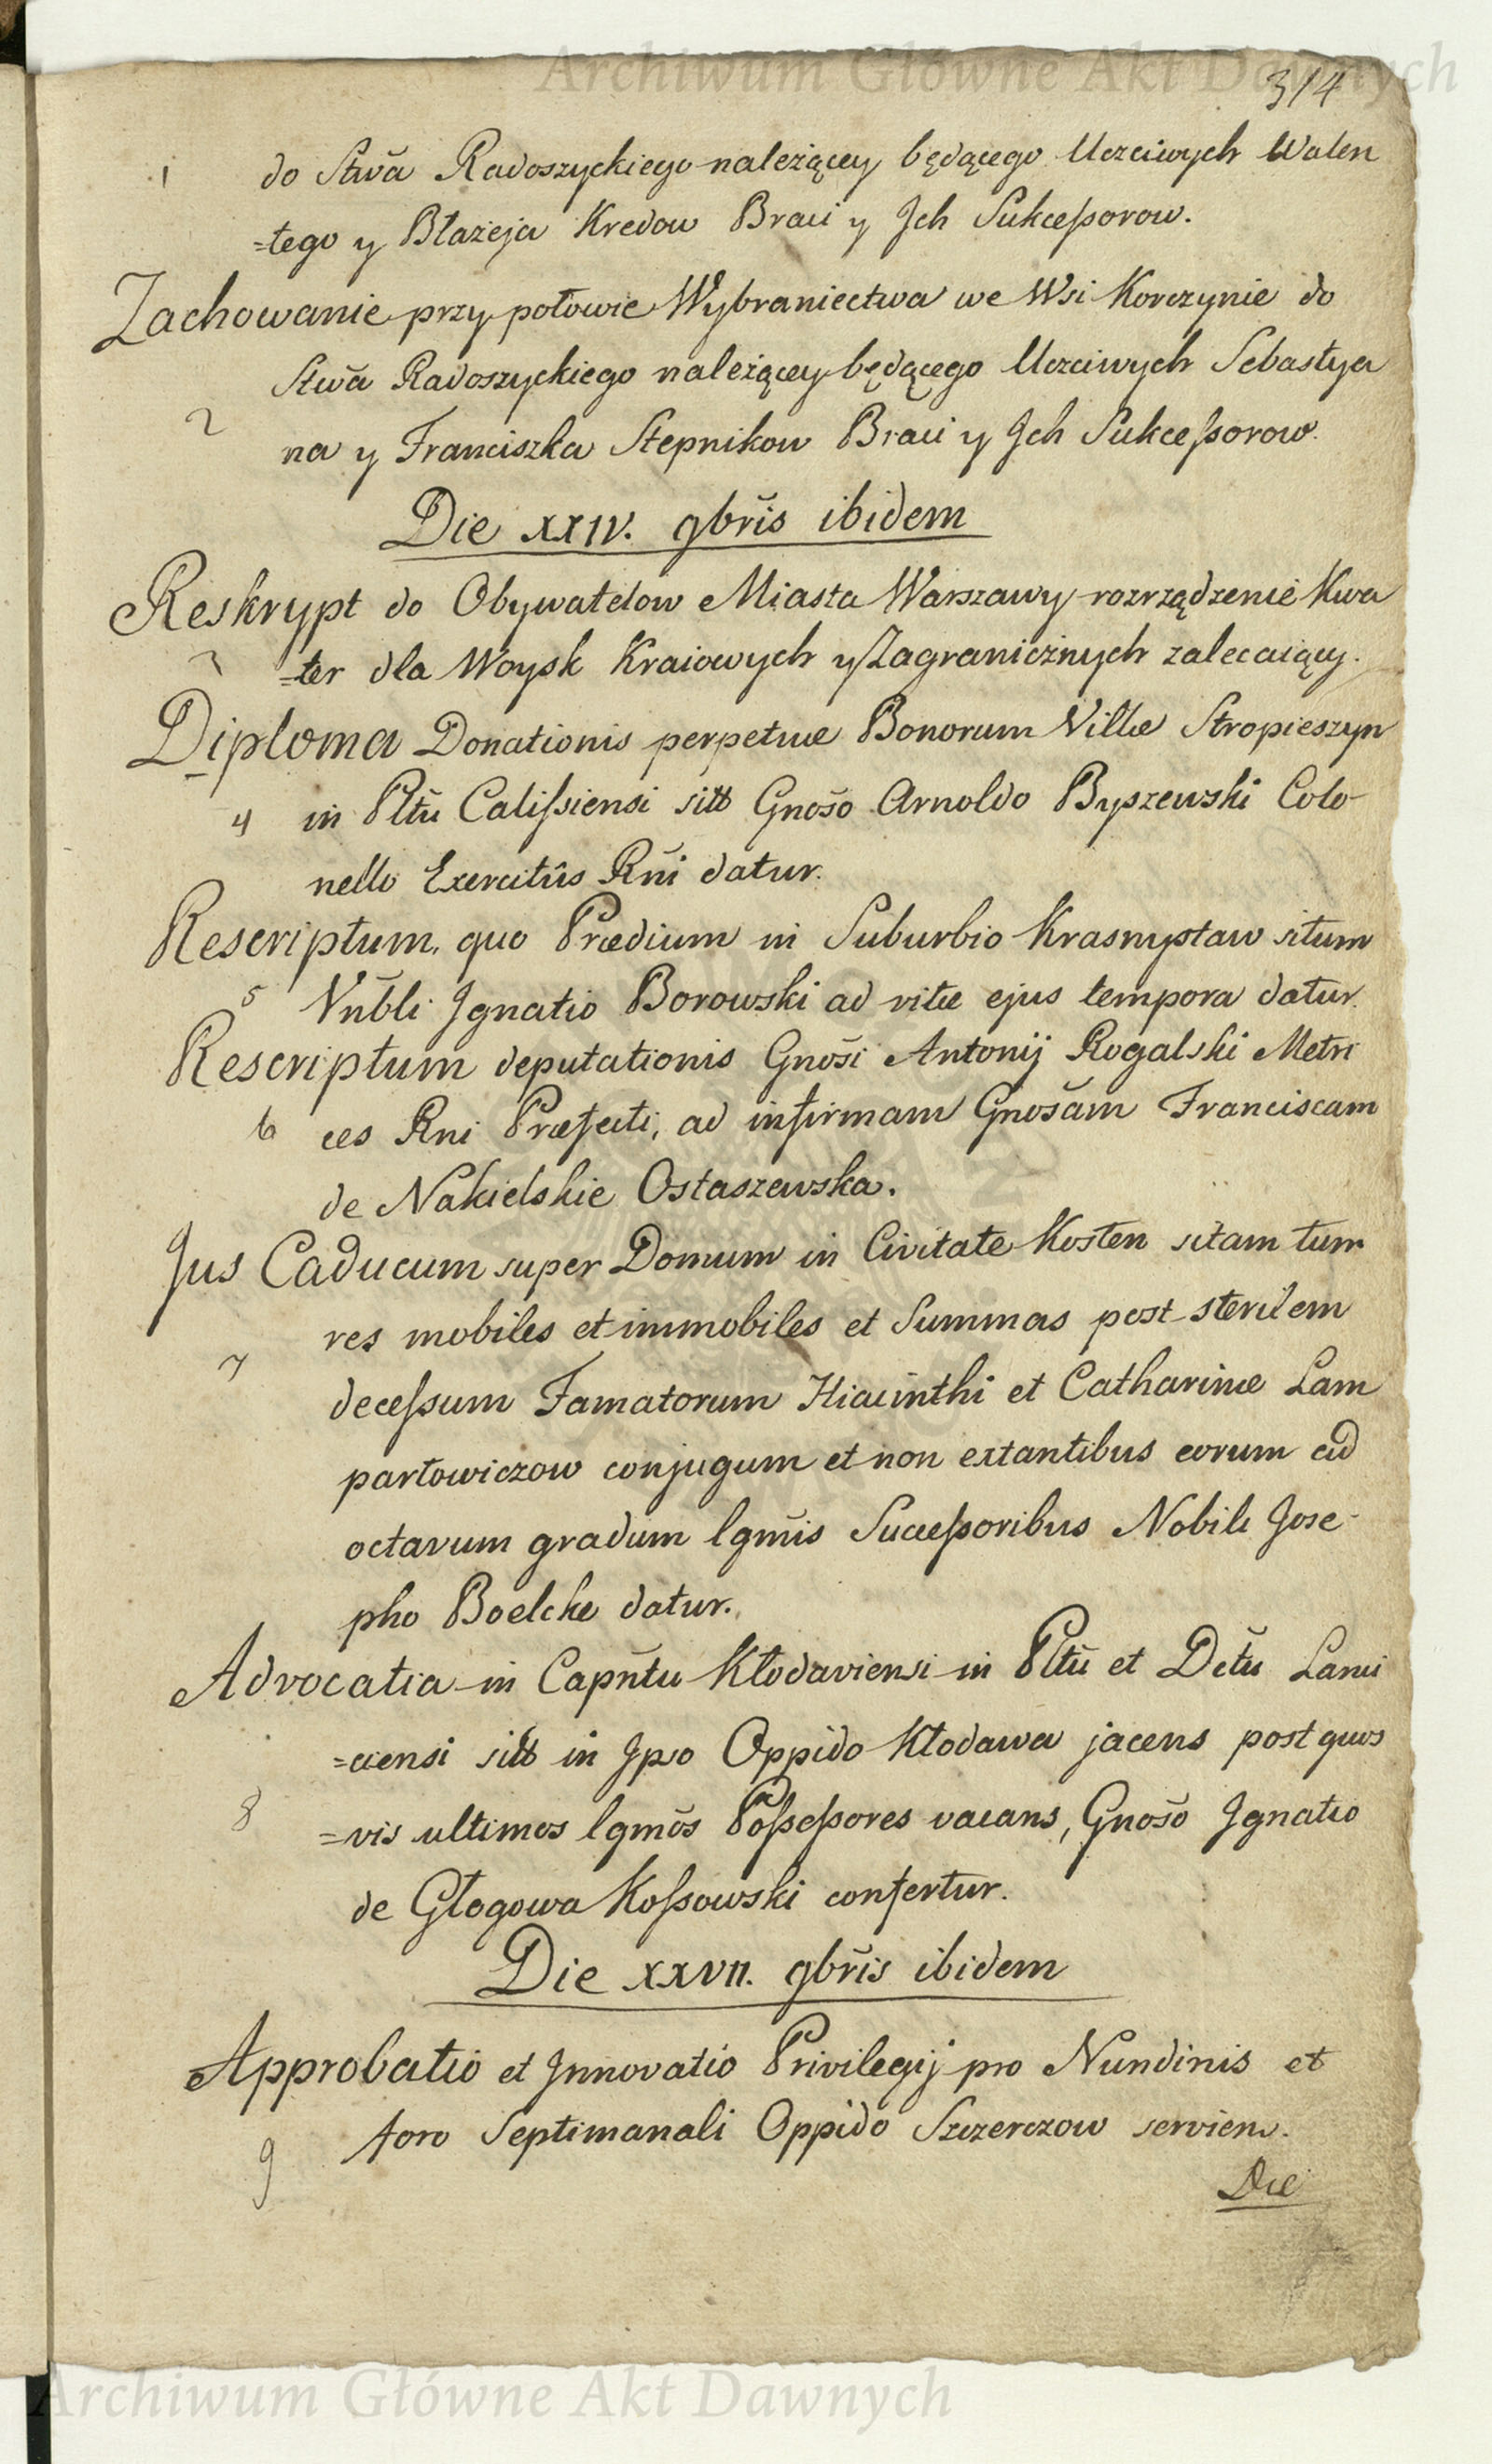 Archiwum Główne Akt Dawnych
314
1 do Stwã Radoszyckiego należącey będącego Uczciwych Walen
=tego y Błażeja Kredow Braci y Jch Sukceßorow.
Zachowanie przy połowie Wybraniectwa we Wsi Korczynie do
Stwã Radoszyckiego należącey będącego Uczciwych Sebastya
2 na y Franciszka Stepnikow Braci y Jch Sukceßorow.
Die XXIV. 9brĩs ibidem
Reskrypt do Obywatelow Miasta Warszawy rozrządzenie Kwa
3 =ter dla Woysk Kraiowych y Zagranicznych zalecaiący.
Diploma Donationis perpetuæ Bonorum Villæ Stropieszyn
4 in Pltũ Calißiensi sitt Gnõso Arnoldo Byszewski Colo-
nello Exercitûs Rñi datur.
Rescriptum, quo Prædium in Suburbio Krasnystaw situm
5 Nñbli Jgnatio Borowski ad vitæ ejus tempora datur.
Rescriptum deputationis Gnõsi Antonij Rogalski Metri
6 ces Rni Præfecti, ad infirmam Gnosãm Franciscam
de Nakielskie Ostaszewska.
Jus Caducum super Domum in Civitate Kosten sitam tum
res mobiles et immobiles et Summas post sterilem
7 deceßum Famatorum Hiacinthi et Catharinæ Lam
partowiczow conjugum et non extantibus eorum ad
octavum gradum lgmĩs Succeßoribus Nobili Jose-
pho Boelcke datur.
Advocatia in Capñtu Kłodaviensi in Pltũ et Dctũ Lanci
=ciensi sitt in Jpso Oppido Kłodawa jacens post quos
8 =vis ultimos lgmõs Poßeßores vacans, Gnosõ Jgnatio
de Głogowa Koßowski confertur.
Die XXVII. 9brĩs ibidem
Approbatio et Jnnovatio Privilegij pro Nundinis et
9 foro Septimanali Oppido Szczerczow servien.
Die
Archiwum Główne Akt Dawnych